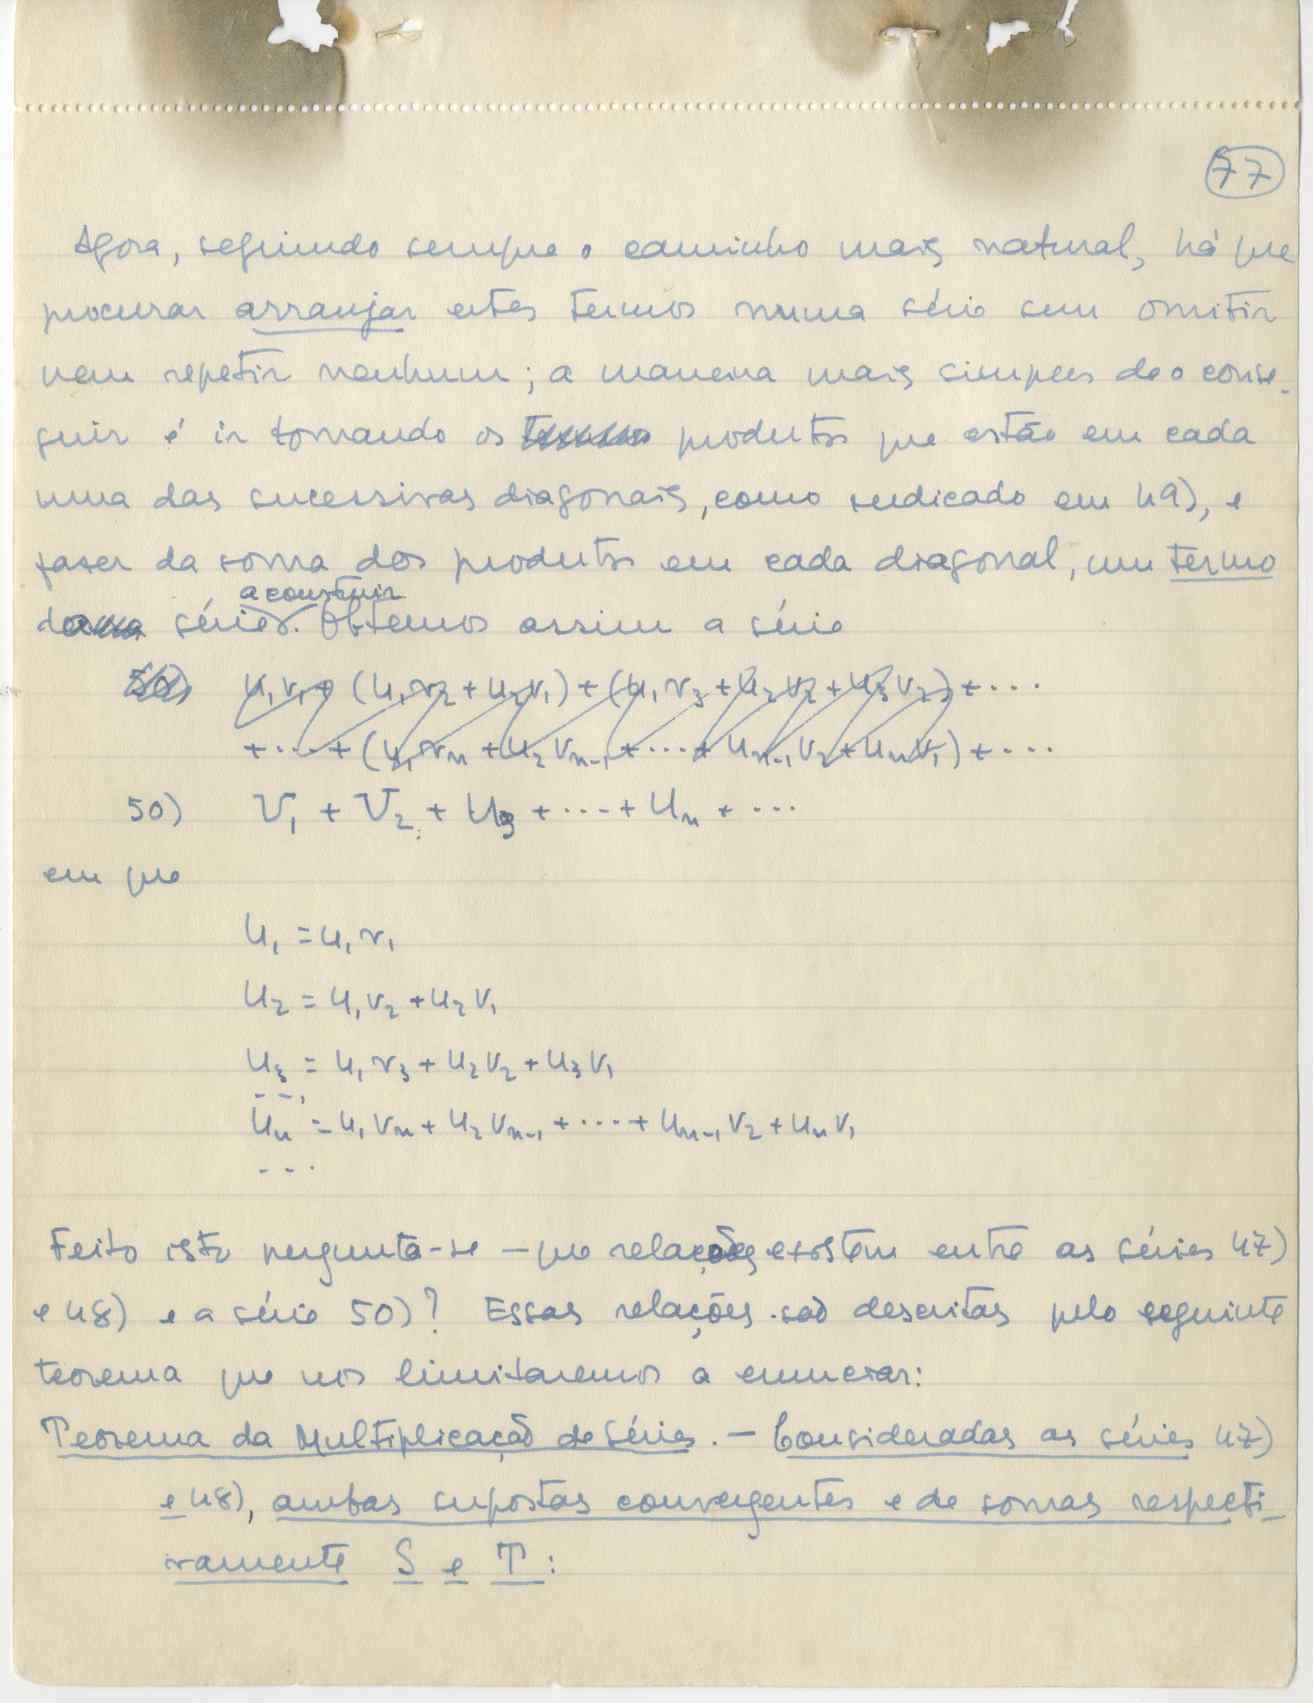 77
Agora, seguindo sempre o caminho mais natural, há que
procurar arranjar estes termos numa série sem omitir
nem repetir nenhum; a maneira mais simples de o conse-
guir é ir tomando os termos produtos que estão em cada
uma das sucessivas diagonais, como indicado em 49), e
fazer da soma dos produtos em cada diagonal, um termo
a construir
da série. Obtemos assim a série
50) u₁v₁ + (u₁v₂ + u₂v₁) + (u₁v₃ + u₂v₂ + u₃v₂) + ...
+ ... + (u₁vₙ + u₂vₙ₋₁ + ... + uₙ₋₁v₂ + uₙv₁) + ...
50) U₁ + U₂ + U₃ + ... + Uₙ + ...
em que
U₁ = u₁v₁
U₂ = u₁v₂ + u₂v₁
U₃ = u₁v₃ + u₂v₂ + u₃v₁
- - .
Uₙ = u₁vₙ + u₂vₙ₋₁ + ... + uₙ₋₁v₂ + uₙv₁
- - .
Feito isto pergunta-se — que relações existem entre as séries 47)
e 48) e a série 50)? Essas relações são descritas pelo seguinte
teorema que nos limitaremos a enunciar:
Teorema da Multiplicação de Séries. — Consideradas as séries 47)
e 48), ambas supostas convergentes e de somas respecti-
vamente S e T: